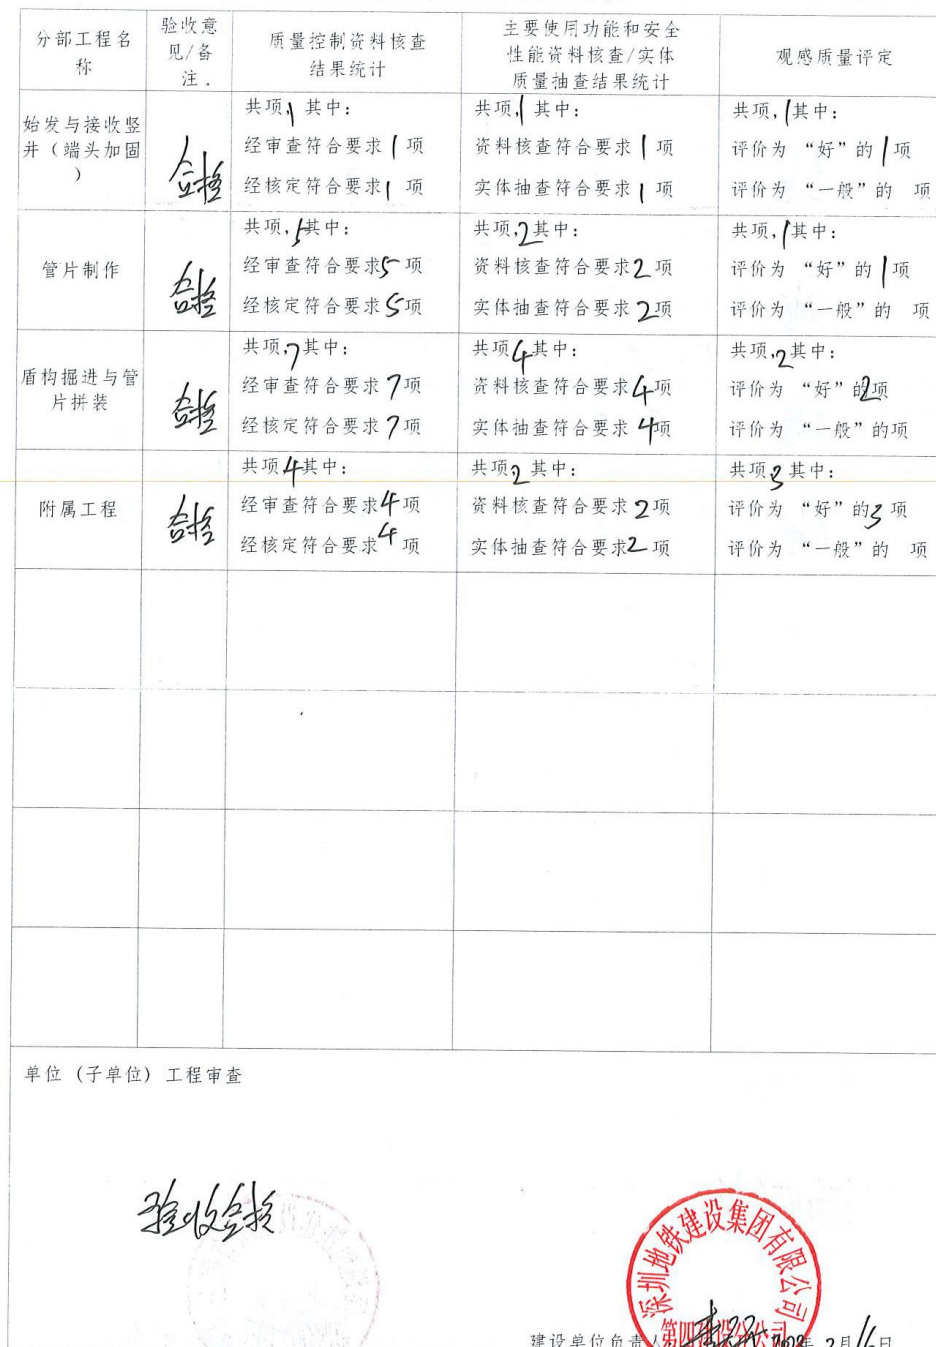 分部工程名称
验收意见/备注.
质量控制资料核查结果统计
主要使用功能和安全性能资料核查/实体质量抽查结果统计
观感质量评定
始发与接收竖井（端头加固）
合格
共项,1 其中:
经审查符合要求1项
经核定符合要求1项
共项,1其中:
资料核查符合要求1项
实体抽查符合要求1项
共项,1其中:
评价为 “好”的1项
评价为 “一般”的 项
管片制作
合格
共项,5其中:
经审查符合要求5项
经核定符合要求5项
共项,2其中:
资料核查符合要求2项
实体抽查符合要求2项
共项,1其中:
评价为 “好”的1项
评价为 “一般”的 项
盾构掘进与管片拼装
合格
共项,7其中:
经审查符合要求7项
经核定符合要求7项
共项4其中:
资料核查符合要求4项
实体抽查符合要求4项
共项,2其中:
评价为 “好”的2项
评价为 “一般”的项
附属工程
合格
共项4其中:
经审查符合要求4项
经核定符合要求4项
共项2其中:
资料核查符合要求2项
实体抽查符合要求2项
共项3其中:
评价为 “好”的3项
评价为 “一般”的 项
单位（子单位）工程审查
验收合格
深圳地铁建设集团有限公司
第四建设分公司
建设单位负责人 年 2月16日